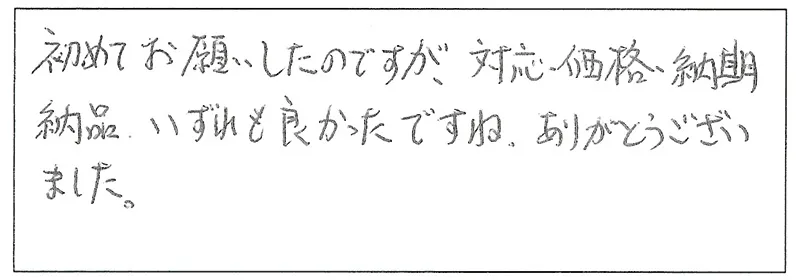 初めてお願いしたのですが、対応、価格、納期
納品、いずれも良かったですね。ありがとうござい
ました。